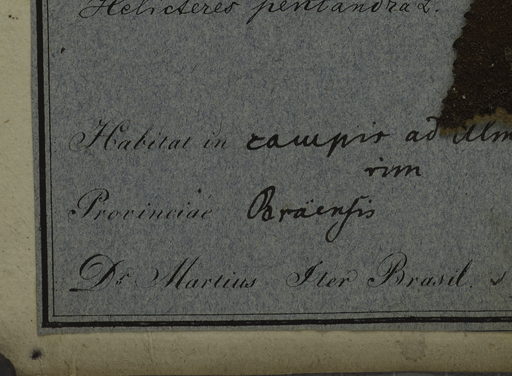 Helicteres pentandra L.
Habitat in campis ad
rim
Provinciae Paräensis
Dr. Martius Iter Brasil.